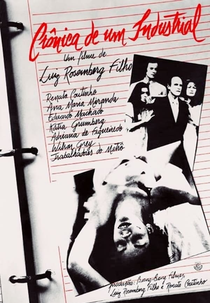 Crônica de um Industrial
Um filme de
Luiz Rosemberg Filho
Renato Coutinho
Ana Maria Miranda
Eduardo Machado
Kátia Grumberg
Adhemia de Figueiredo
Wilson Grey
Trabalhadores do Metrô
Produção: Sunny Filmes
Luiz Rosemberg Filho e Renato Coutinho